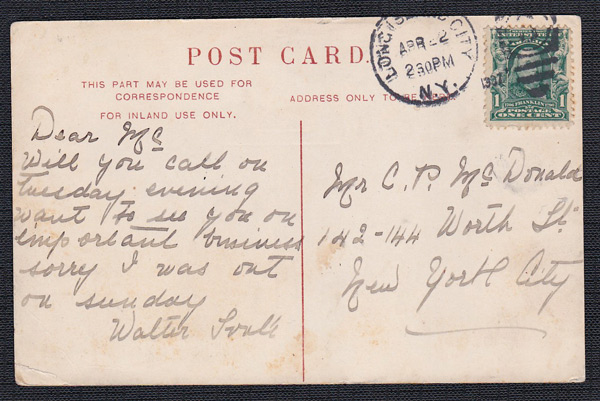 POST CARD.
THIS PART MAY BE USED FOR
CORRESPONDENCE
FOR INLAND USE ONLY.
ADDRESS ONLY TO BE
LONG ISLAND CITY
APR 2
230PM
N.Y.
1907
FRANKLIN
POSTAGE
1 ONE CENT 1
Dear Mc
Will you call on
tuesday evening
want to see you on
emportant business
sorry I was out
on sunday
Walter
Mr C. P. McDonald
142-144 Worth St.
New York City